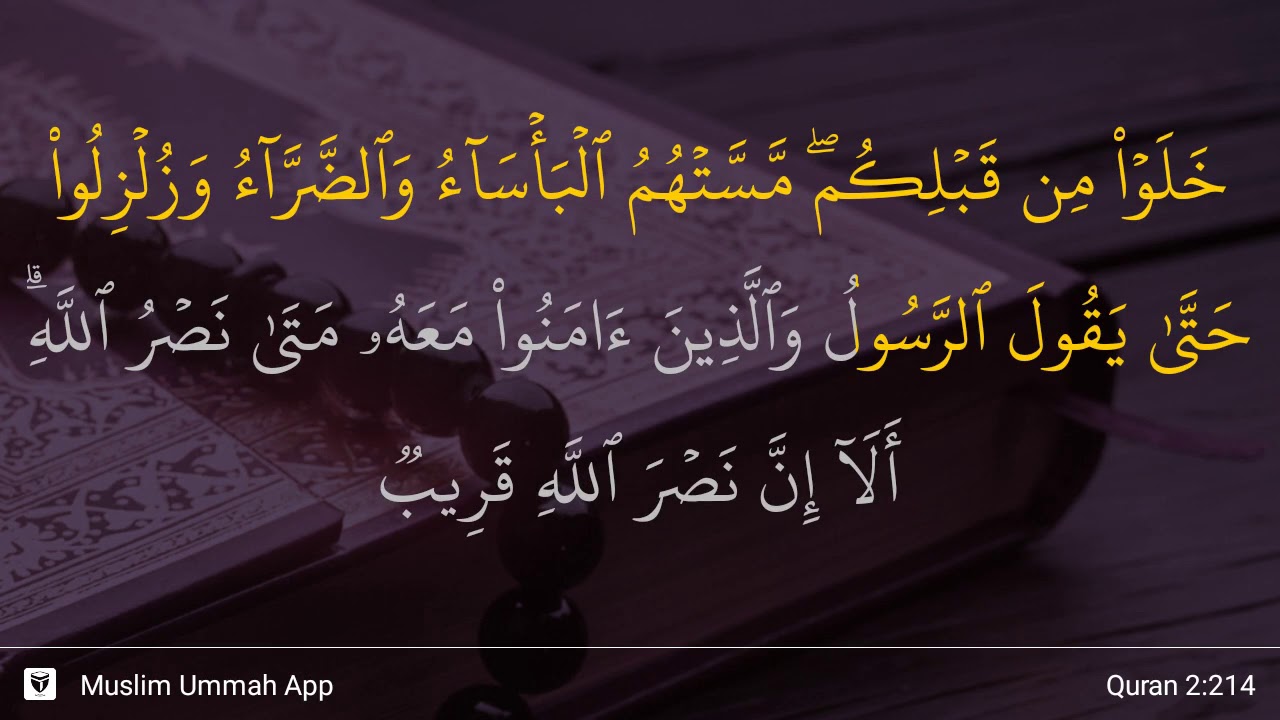 خَلَوۡاْ مِن قَبۡلِكُمۖ مَّسَّتۡهُمُ ٱلۡبَأۡسَآءُ وَٱلضَّرَّآءُ وَزُلۡزِلُواْ
حَتَّىٰ يَقُولَ ٱلرَّسُولُ وَٱلَّذِينَ ءَامَنُواْ مَعَهُۥ مَتَىٰ نَصۡرُ ٱللَّهِۗ
أَلَآ إِنَّ نَصۡرَ ٱللَّهِ قَرِيبٞ
Muslim Ummah App
Quran 2:214